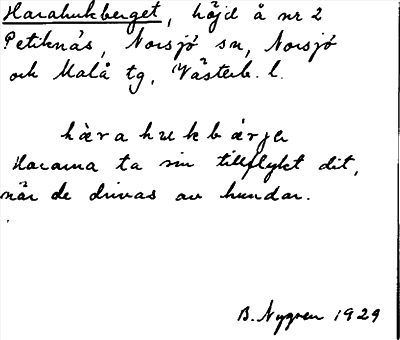 Harahukberget, höjd å nr 2
Petiknäs, Norsjö sn, Norsjö
och Malå tg, Västerb. l.
hàrahukbárje
Hararna ta sin tillflykt dit,
när de drivas av hundar.
B. Nygren 1929